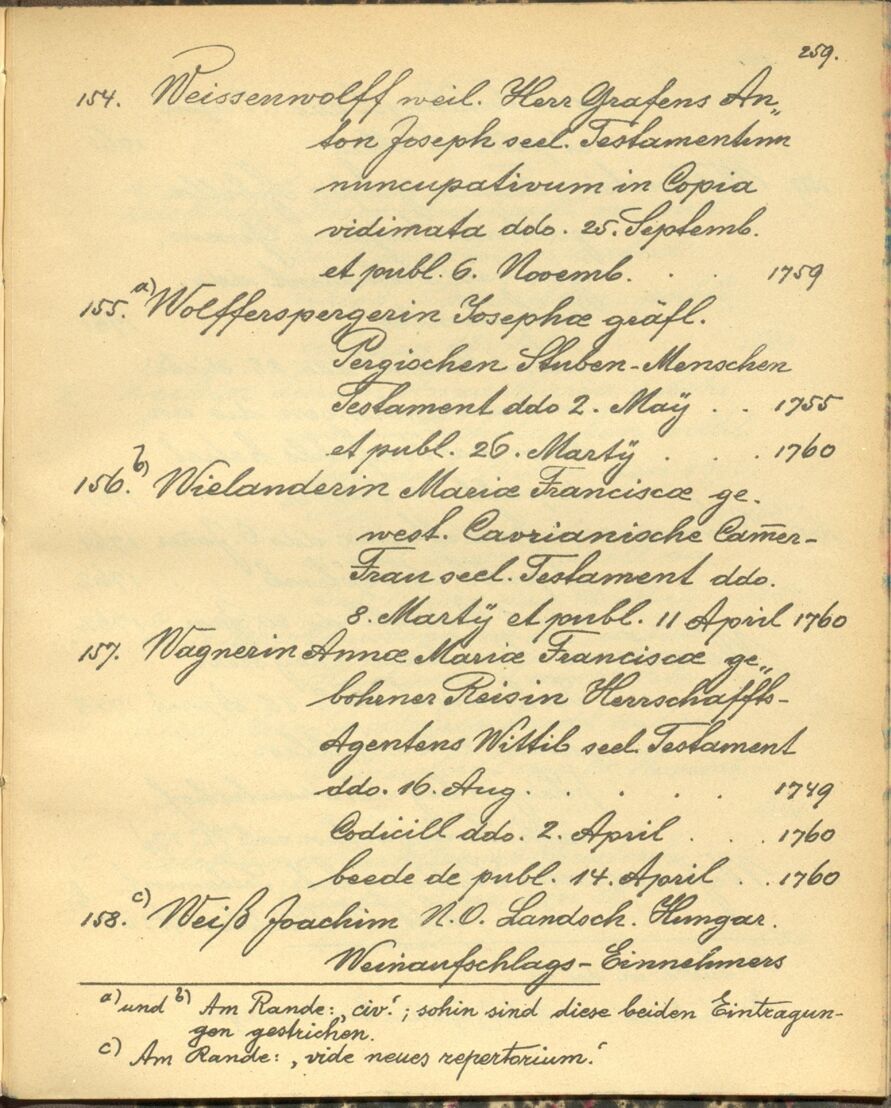 259.
154. Weissenwolff weil. Herr Grafens An„
ton Joseph seel. Testamentum
nuncupativum in Copia
vidimata ddo. 25. Septemb.
et publ. 6. Novemb. . . 1759
155. a) Wolfferspergerin Josephæ gräfl.
Pergischen Stuben-Menschen
Testament ddo 2. Maÿ . . 1755
et publ. 26. Martÿ . . . 1760
156. b) Wielanderin Mariæ Franciscæ ge-
west. Cavrianische Cam̅er-
Frau seel. Testament ddo.
8. Martÿ et publ. 11 April 1760
157. Wagnerin Annæ Mariæ Franciscæ ge„
bohener Reisin Herrschaffts-
Agentens Wittib seel. Testament
ddo. 16. Aug. . . . . 1749
Codicill ddo. 2. April . . . 1760
beede de publ. 14. April . . 1760
158. c) Weiß Joachim N.O. Landsch. Hungar.
Weinaufschlags-Einnehmers
a) und b) Am Rande: „civ.“; sohin sind diese beiden Eintragun-
gen gestrichen.
c) Am Rande: „vide neues repertorium.“